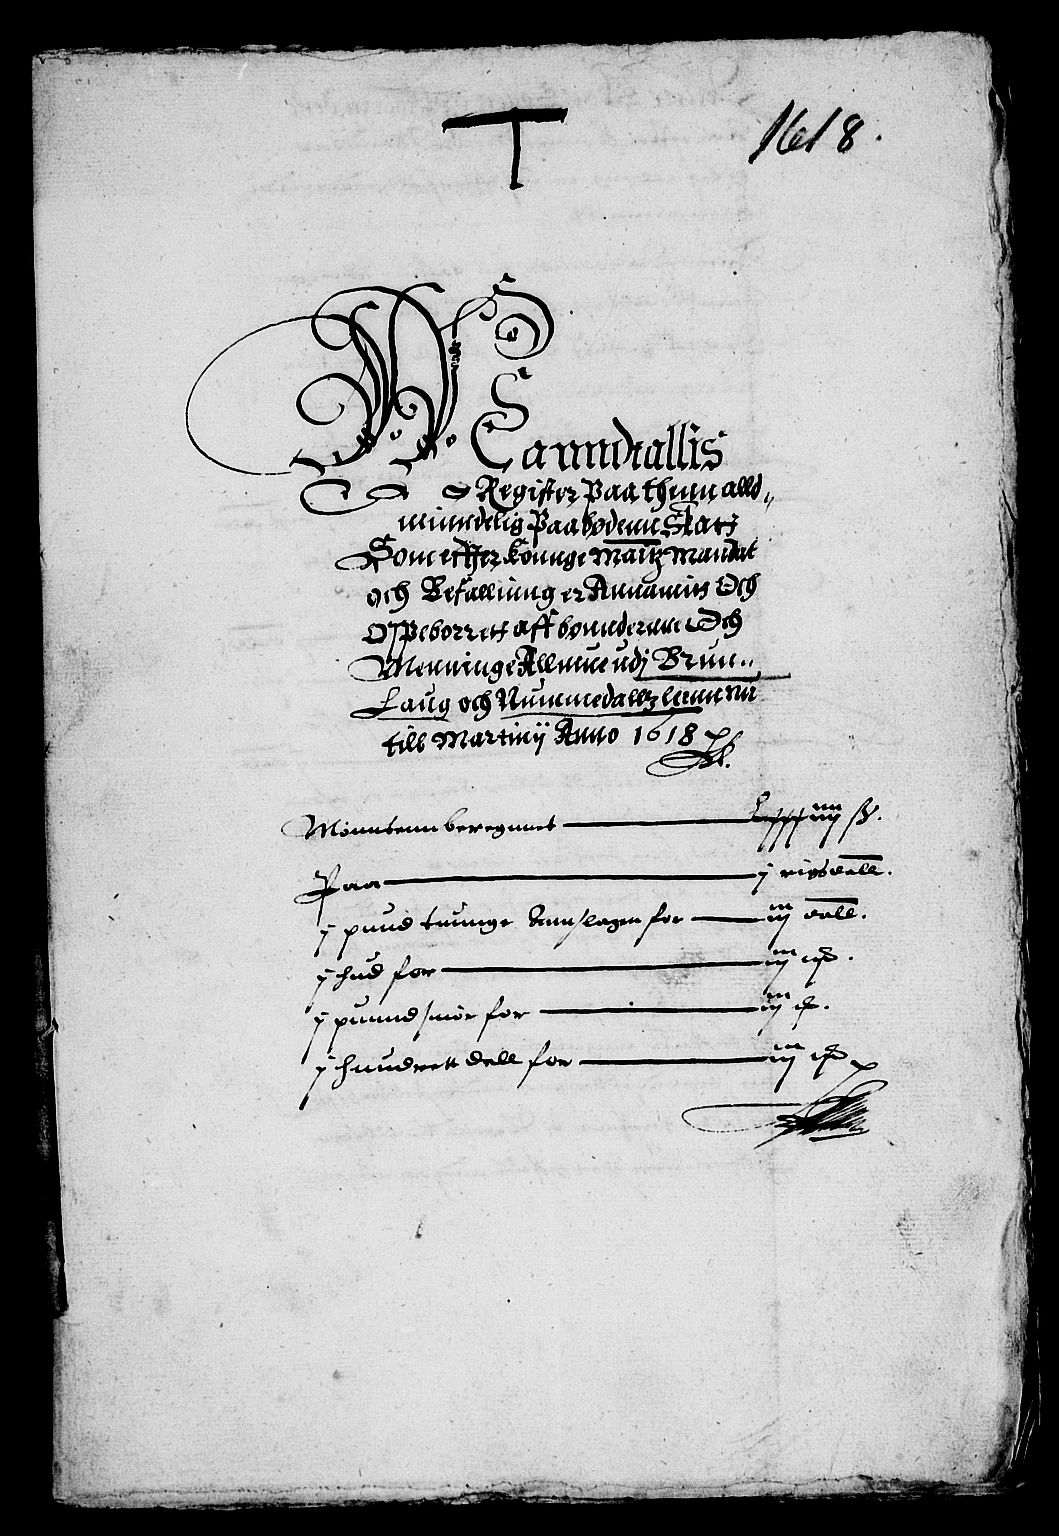 1618.
Manndtallis
Register Paa thenn alld„
minndelig Paabodenne Skatz
Som effter Konnge Maitz Mandat
och Befallning er Annamitt Och
Oppeborrett aff bønnderne Och
Menninge Allmue udj Brun„
Laug och Nummedallz lenn nu
till Martinj Anno 1618
Mønntenn beregnnet ß.
Paa j rigsdall.
j pund tunnge Annslagen for iiij dall.
j hud for iij
j punnd smør for iij
j hundrett dell for iij